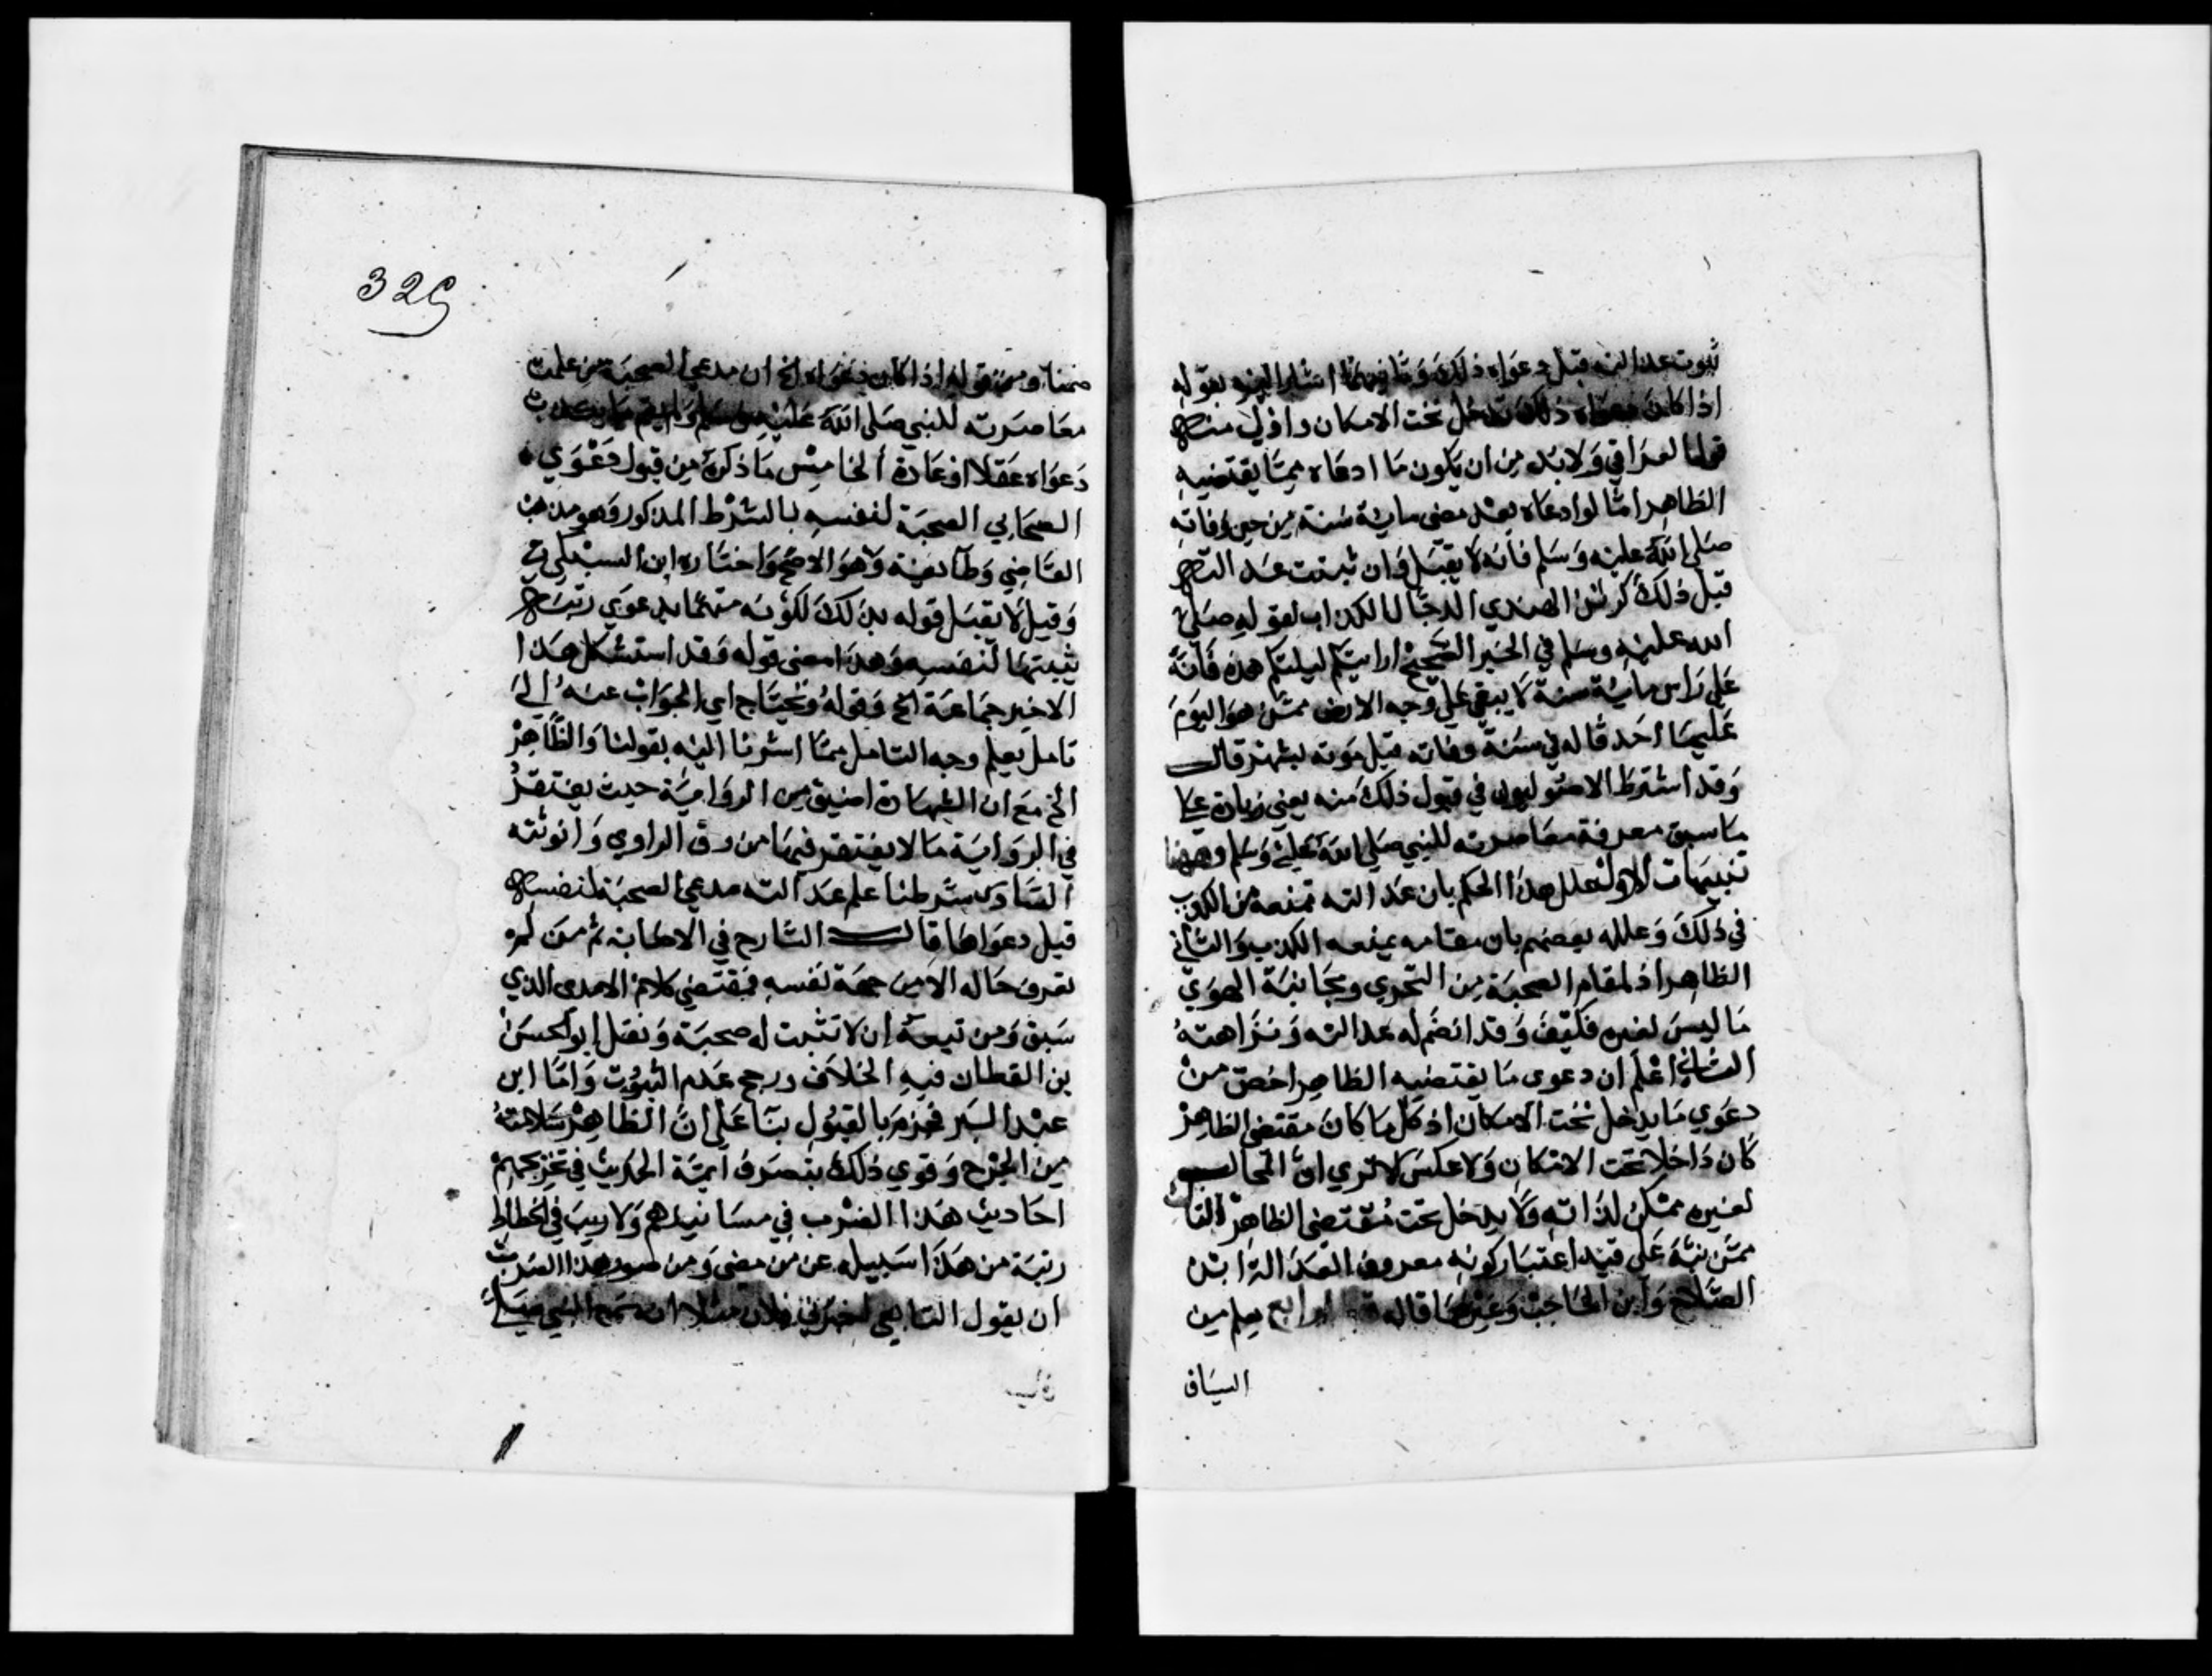 ثبوت عدالته قبل دعواه ذلك وثانيهما اشار اليه بقوله
اذا كان دعواه ذلك تدخل تحت الامكان واولى منه
قول العراقي ولا بد من ان يكون ما ادعاه مما يقتضيه
الظاهر اما لو ادعاه بعد مضي ماية سنة من حين وفاته
صلى الله عليه وسلم فانه لا يقبل وان ثبتت عدالته
قبل ذلك كرتن الهندي الدجال الكذاب لقوله صلى
الله عليه وسلم في الخبر الصحيح ارايتكم ليلتكم هذه فانه
على راس ماية سنة لا يبقى على وجه الارض ممن هو اليوم
عليها احد قاله في سنة وفاته قبل موته بشهر قال
وقد اشترط الاصوليون في قبول ذلك منه يعني زيادة على
ما سبق معرفة معاصرته للنبي صلى الله عليه وسلم وههنا
تنبيهات الاول علل هذا الحكم بان عدالته تمنعه من الكذب
في ذلك وعلله بعضهم بان مقامه يمنعه الكذب والثاني
الظاهر اذ لمقام الصحبة من التحري ومجانبة الهوى
ما ليس لغيره فكيف وقد انضم له عدالته ونزاهته
الثاني اعلم ان دعوى ما يقتضيه الظاهر اخص من
دعوي ما يدخل تحت الامكان اذ كل ما كان مقتضى الظاهر
كان داخلا تحت الامكان ولا عكس الا تري ان المحال
لغيره ممكن لذاته ولا يدخل تحت مقتضى الظاهر الثالث
ممن نبه على قيد اعتبار كونه معروف العدالة ابن
الصلاح وابن الحاجب وغيرهما قاله الرابع يعلم من
السياق
329
ضمنا ومن قوله اذا كان دعواه الخ ان مدعي الصحبة من علمت
معاصرته للنبي صلى الله عليه وسلم
دعواه عقلا او عادة الخامس ما ذكره من قبول دعوي
الصحابي الصحبة لنفسه بالشرط المذكور وهو مذهب
القاضي وطايفة وهو الاصح واختاره ابن السبكي
وقيل لا يقبل قوله بذلك لكونه متهما بدعوي رتبة
يثبتها لنفسه وهذا معنى قوله وقد استشكل هذا
الاخير جماعة الخ وقوله ويحتاج اي الجواب عنه الى
تامل يعلم وجه التامل مما اشرنا اليه بقولنا والظاهر
الخ مع ان الشهادة اضيق من الرواية حيث يفتقر
في الرواية ما لا يفتقر فيها من رق الراوي وانوثته
السادس شرطنا علم عدالته مدعي الصحبة لنفسه
قبل دعواها قال الشارح في الاصابة ثم من لم
يعرف حاله الا من جهة نفسه فمقتضى كلام الامدي الذي
سبق ومن تبعه ان لا تثبت له صحبة ونقل ابو الحسن
بن القطان فيه الخلاف ورجح عدم الثبوت واما ابن
عبد البر فجزم بالقبول بنا على ان الظاهر سلامته
من الجرح وقوي ذلك بتصرف ايمة الحديث في تخريجهم
احاديث هذا الضرب في مسانيدهم ولا ريب في انحطاط
رتبة من هذا سبيله عن من مضى ومن صور هذا الضرب
ان يقول التابعي اخبرني فلان مثلا انه سمع النبي صلى